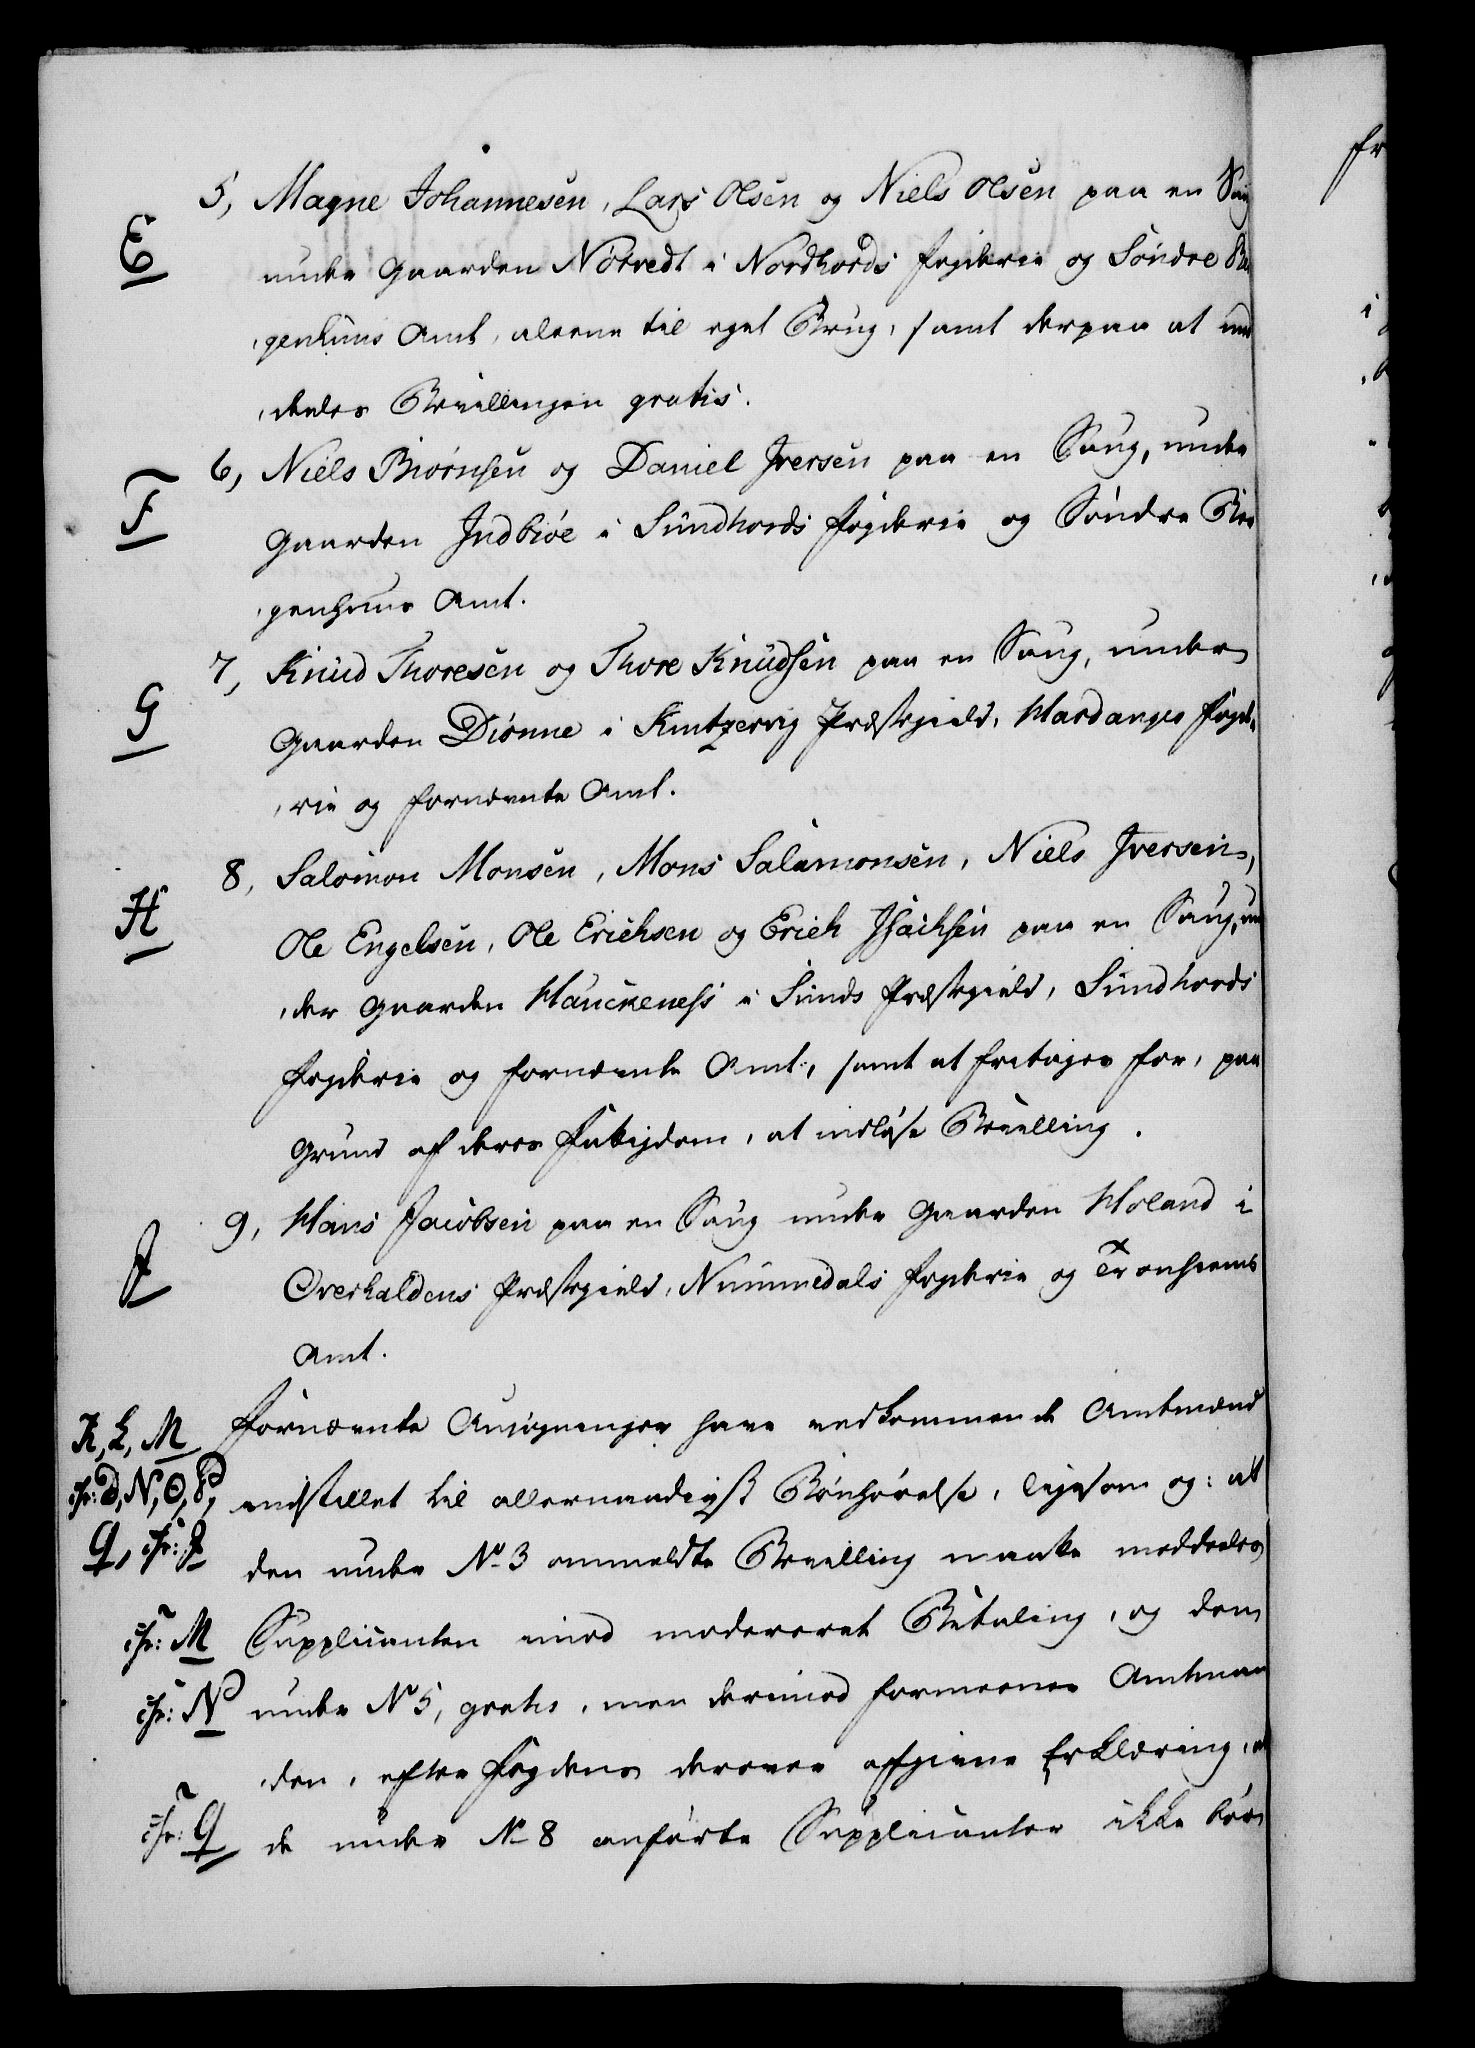 E
5, Magne Johannesen, Lars Olsen og Niels Olsen paa en Saug
under Gaarden Nötvedt i Nordhords Fogderie og Söndre Ber
genhuus Amt, aleene til eget Brug, samt derpaa at med
deeles Bevillingen gratis.
F
6, Niels Biörnsen og Daniel Iversen paa en Saug, under
Gaarden Indbiöe i Sundhords Fogderie og Söndre Ber
genhuus Amt.
G
7, Knud Thoresen og Thore Knudsen paa en Saug, under
Gaarden Diönne i Kintzervig Præstegield, Hardanger Fogde
rie og fornævnte Amt.
H
8, Salomon Monsen, Mons Salamonsen, Niels Iversen,
Ole Engelsen, Ole Erichsen og Erich Isachsen paa en Saug, un
der Gaarden Hauckeness i Sunds Præstegield, Sundhords
Fogderie og fornævnte Amt, samt at fritages for, paa
Grund af deres Fattigdom, at indløse Bevilling.
J
9, Hans Jacobsen paa en Saug under Gaarden Holand i
Overhaldens Præstegield, Nummedals Fogderie og Tronhiems
Amt.
K, L, M
Fornævnte Ansøgninger have vedkommende Amtmænd
cfr: D, N, O, P,
indstillet til allernaadigst Bönhörelse, ligesom og: at
Q, cfr: J
den under No 3 ommeldte Bevilling maatte meddeeles
cfr: M
Supplicanten imod modereret Betaling, og den
cfr: N
under No 5, gratis, men derimod formeener Amtman
den, efter Fogdens derover afgivne Erklæring, at
cfr: Q
de under No 8 anförte Supplicanter ikke bör